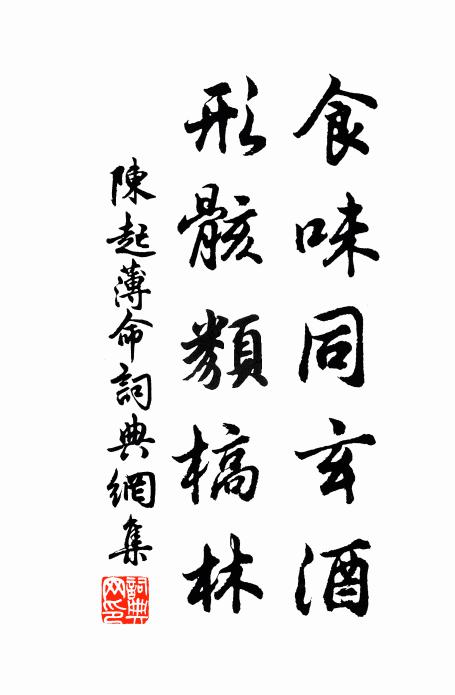 食味同玄酒
形骸類槁林
陳起薄命詞典網集
詞典網印